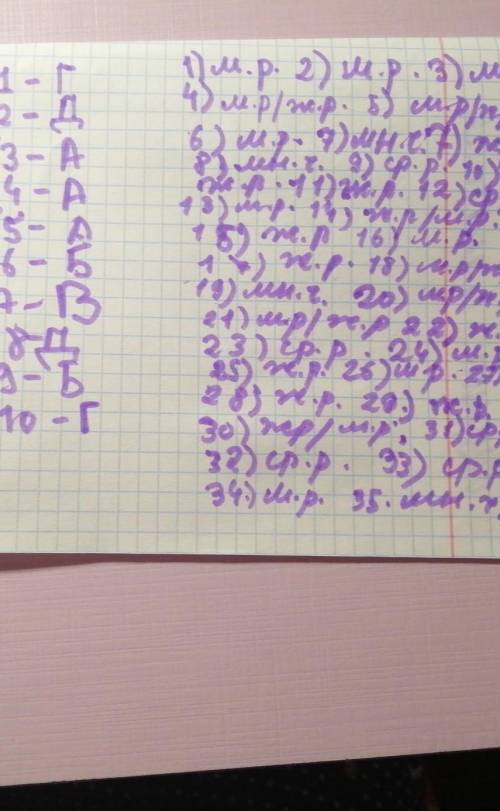 1 - Г
2 - Д
3 - А
4 - А
5 - А
6 - Б
7 - В
8 - Д
9 - Б
10 - Г
1) м.р. 2) м.р. 3) м
4) м.р/ж.р. 5) м.р/ж
6) м.р. 7) мн.ч. 7) ж
8) мн.ч. 9) ср.р. 10)
ж.р. 11) ж.р. 12) ср
13) м.р. 14) ж.р/м.р.
15) ж.р 16) м.р.
17) ж.р. 18) м.р/ж
19) мн.ч. 20) мр/ж
21) м.р/ж.р 22) ж.
23) ср.р. 24) м.
25) ж.р. 26) м.р. 27
28) ж.р. 29.) ж.р.
30) жр/м.р; 31) ср
32) ср.р. 33) ср.р
34.) м.р. 35. мн.ч